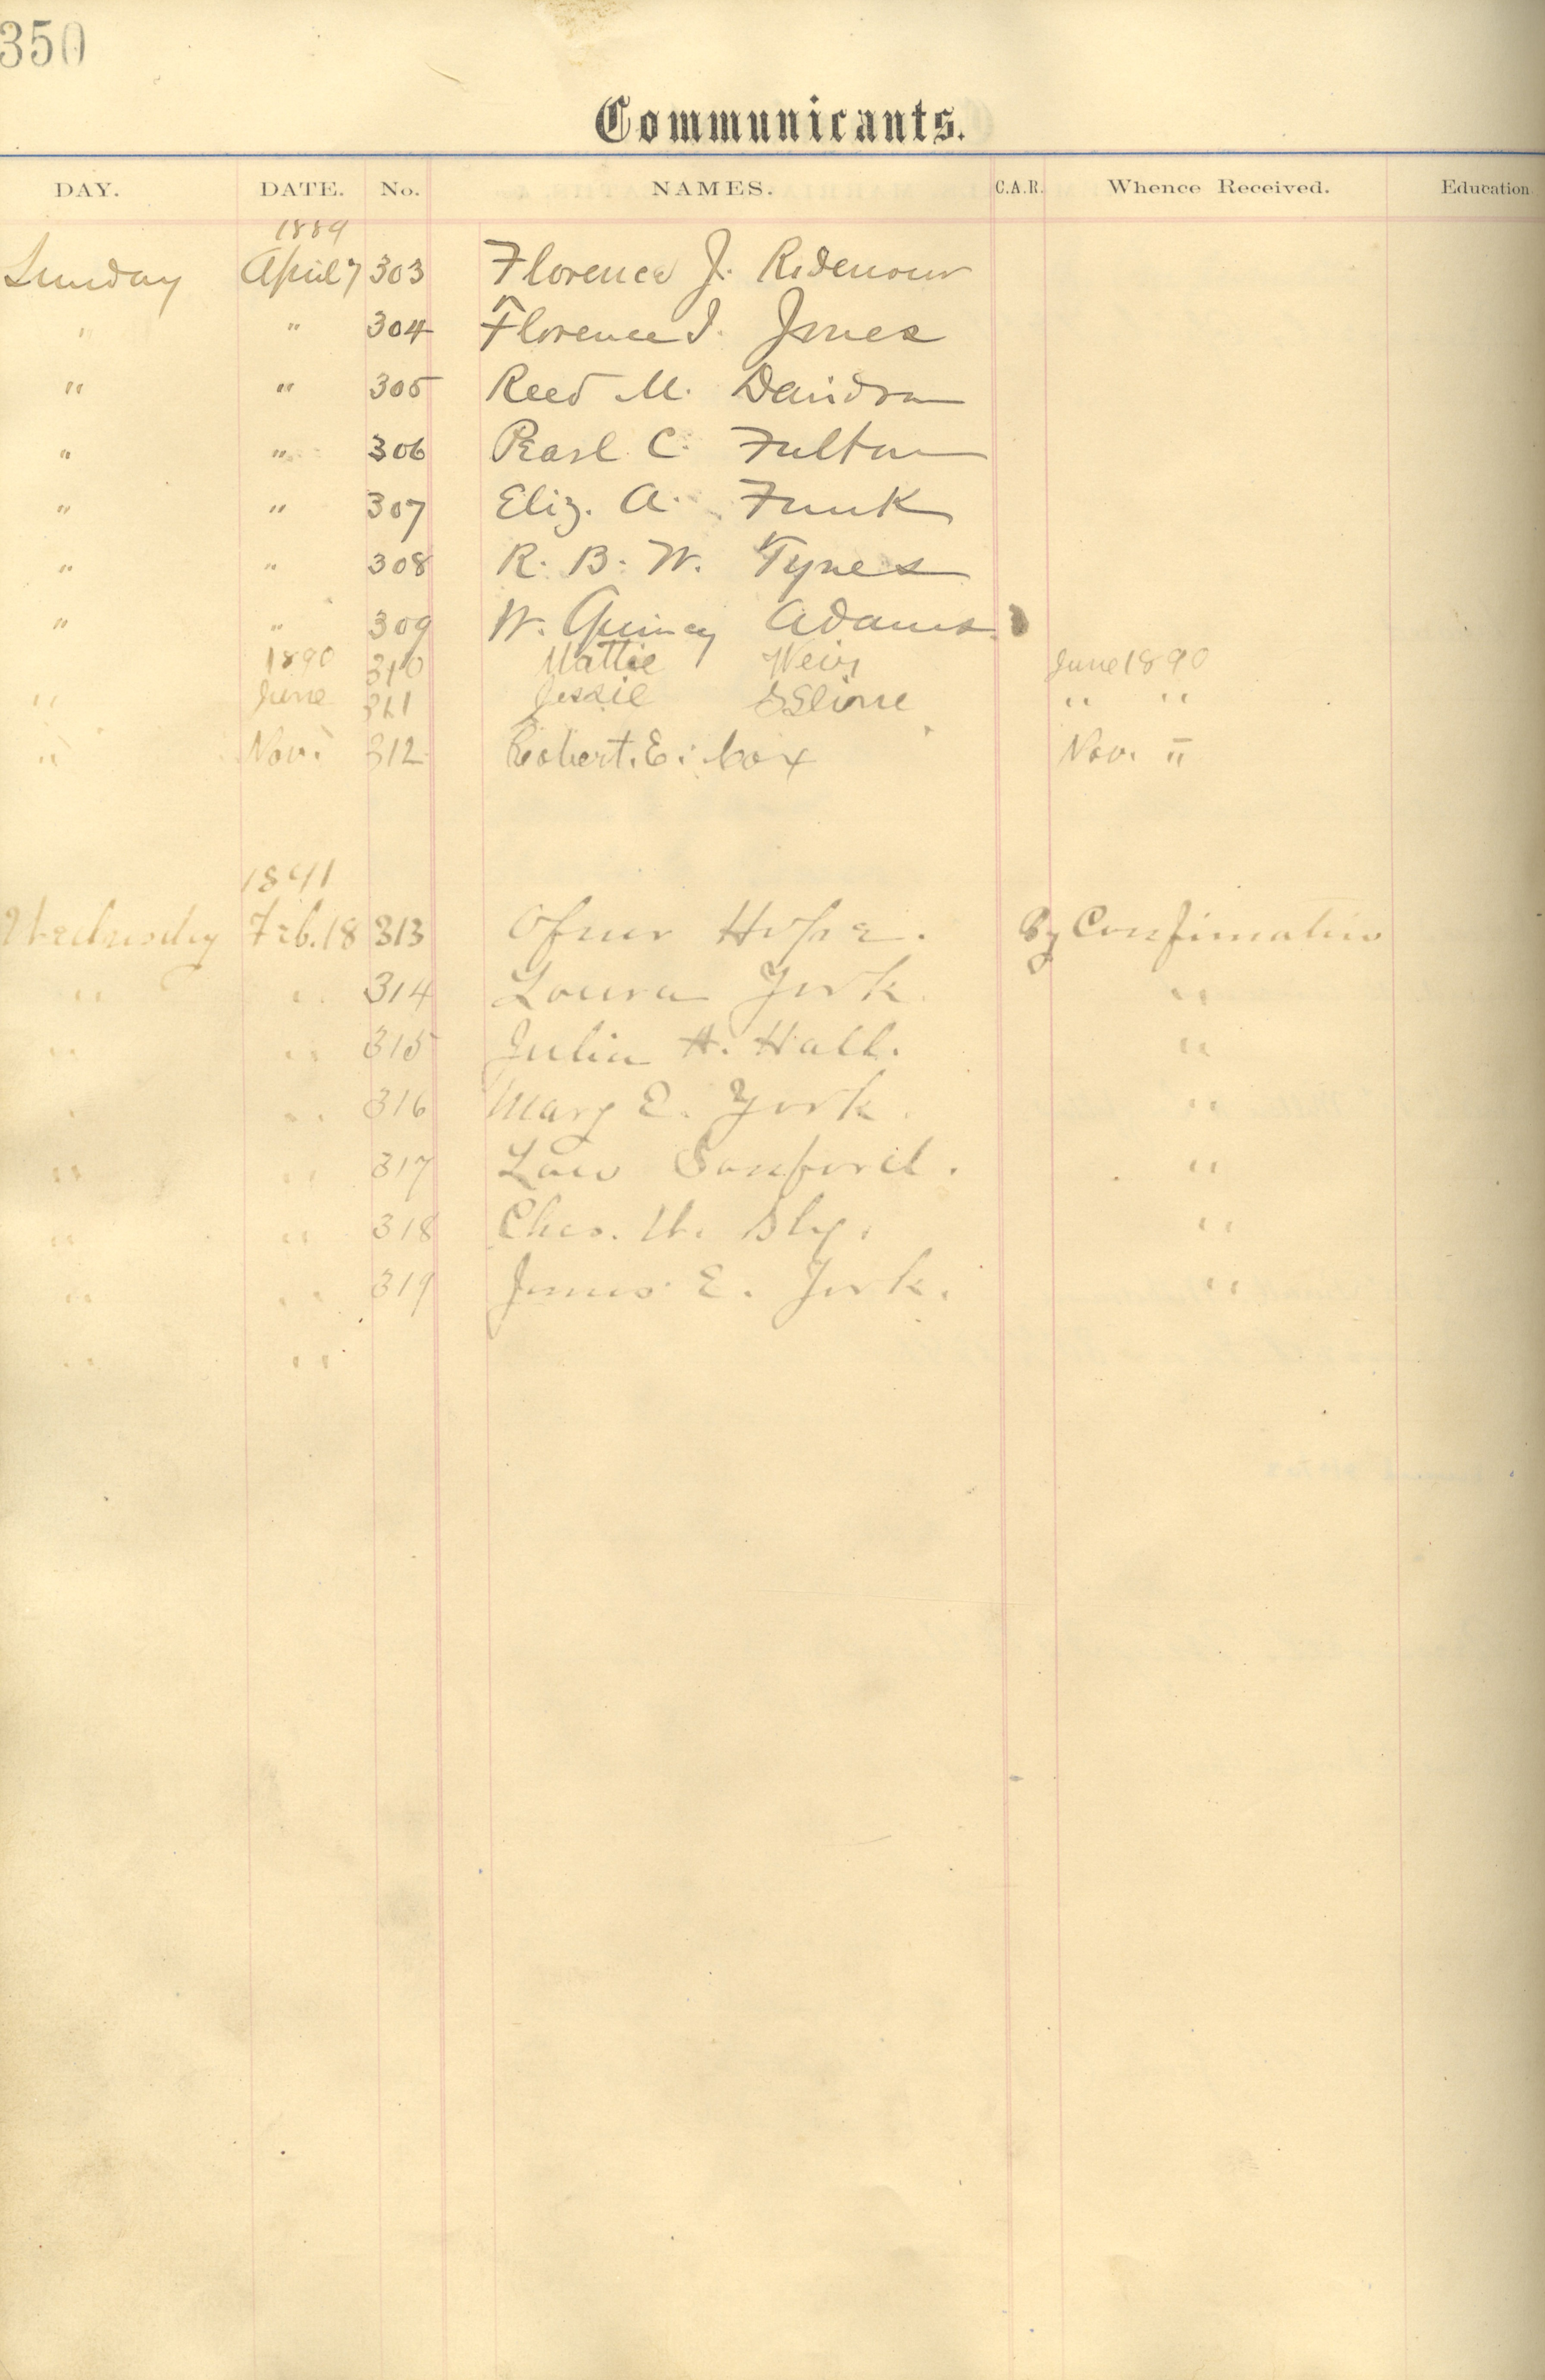 350
Communicants.
DAY. DATE. No. NAMES. C.A.R. Whence Received. Education
1889
Sunday April 7 303 Florence J. Ridenour
" " 304 Florence I. Jones
" " 305 Reed M. Davidson
" " 306 Pearl C. Fulton
" " 307 Eliz. A. Funk
" " 308 R. B. W. Tynes
" " 309 W. Quincy Adams
1890 310 Mattie Weir June 1890
" June 311 Jessie " "
" Nov. 312 Robert. E. Cox Nov. "
1891
Wednesday Feb. 18 313 Hope. By Confirmation
" " 314 Laura York. "
" " 315 Julia H. Hall. "
" " 316 Mary E. York. "
" " 317 Sanford. "
" " 318 Chas. Sly. "
" " 319 James E. York. "
" "